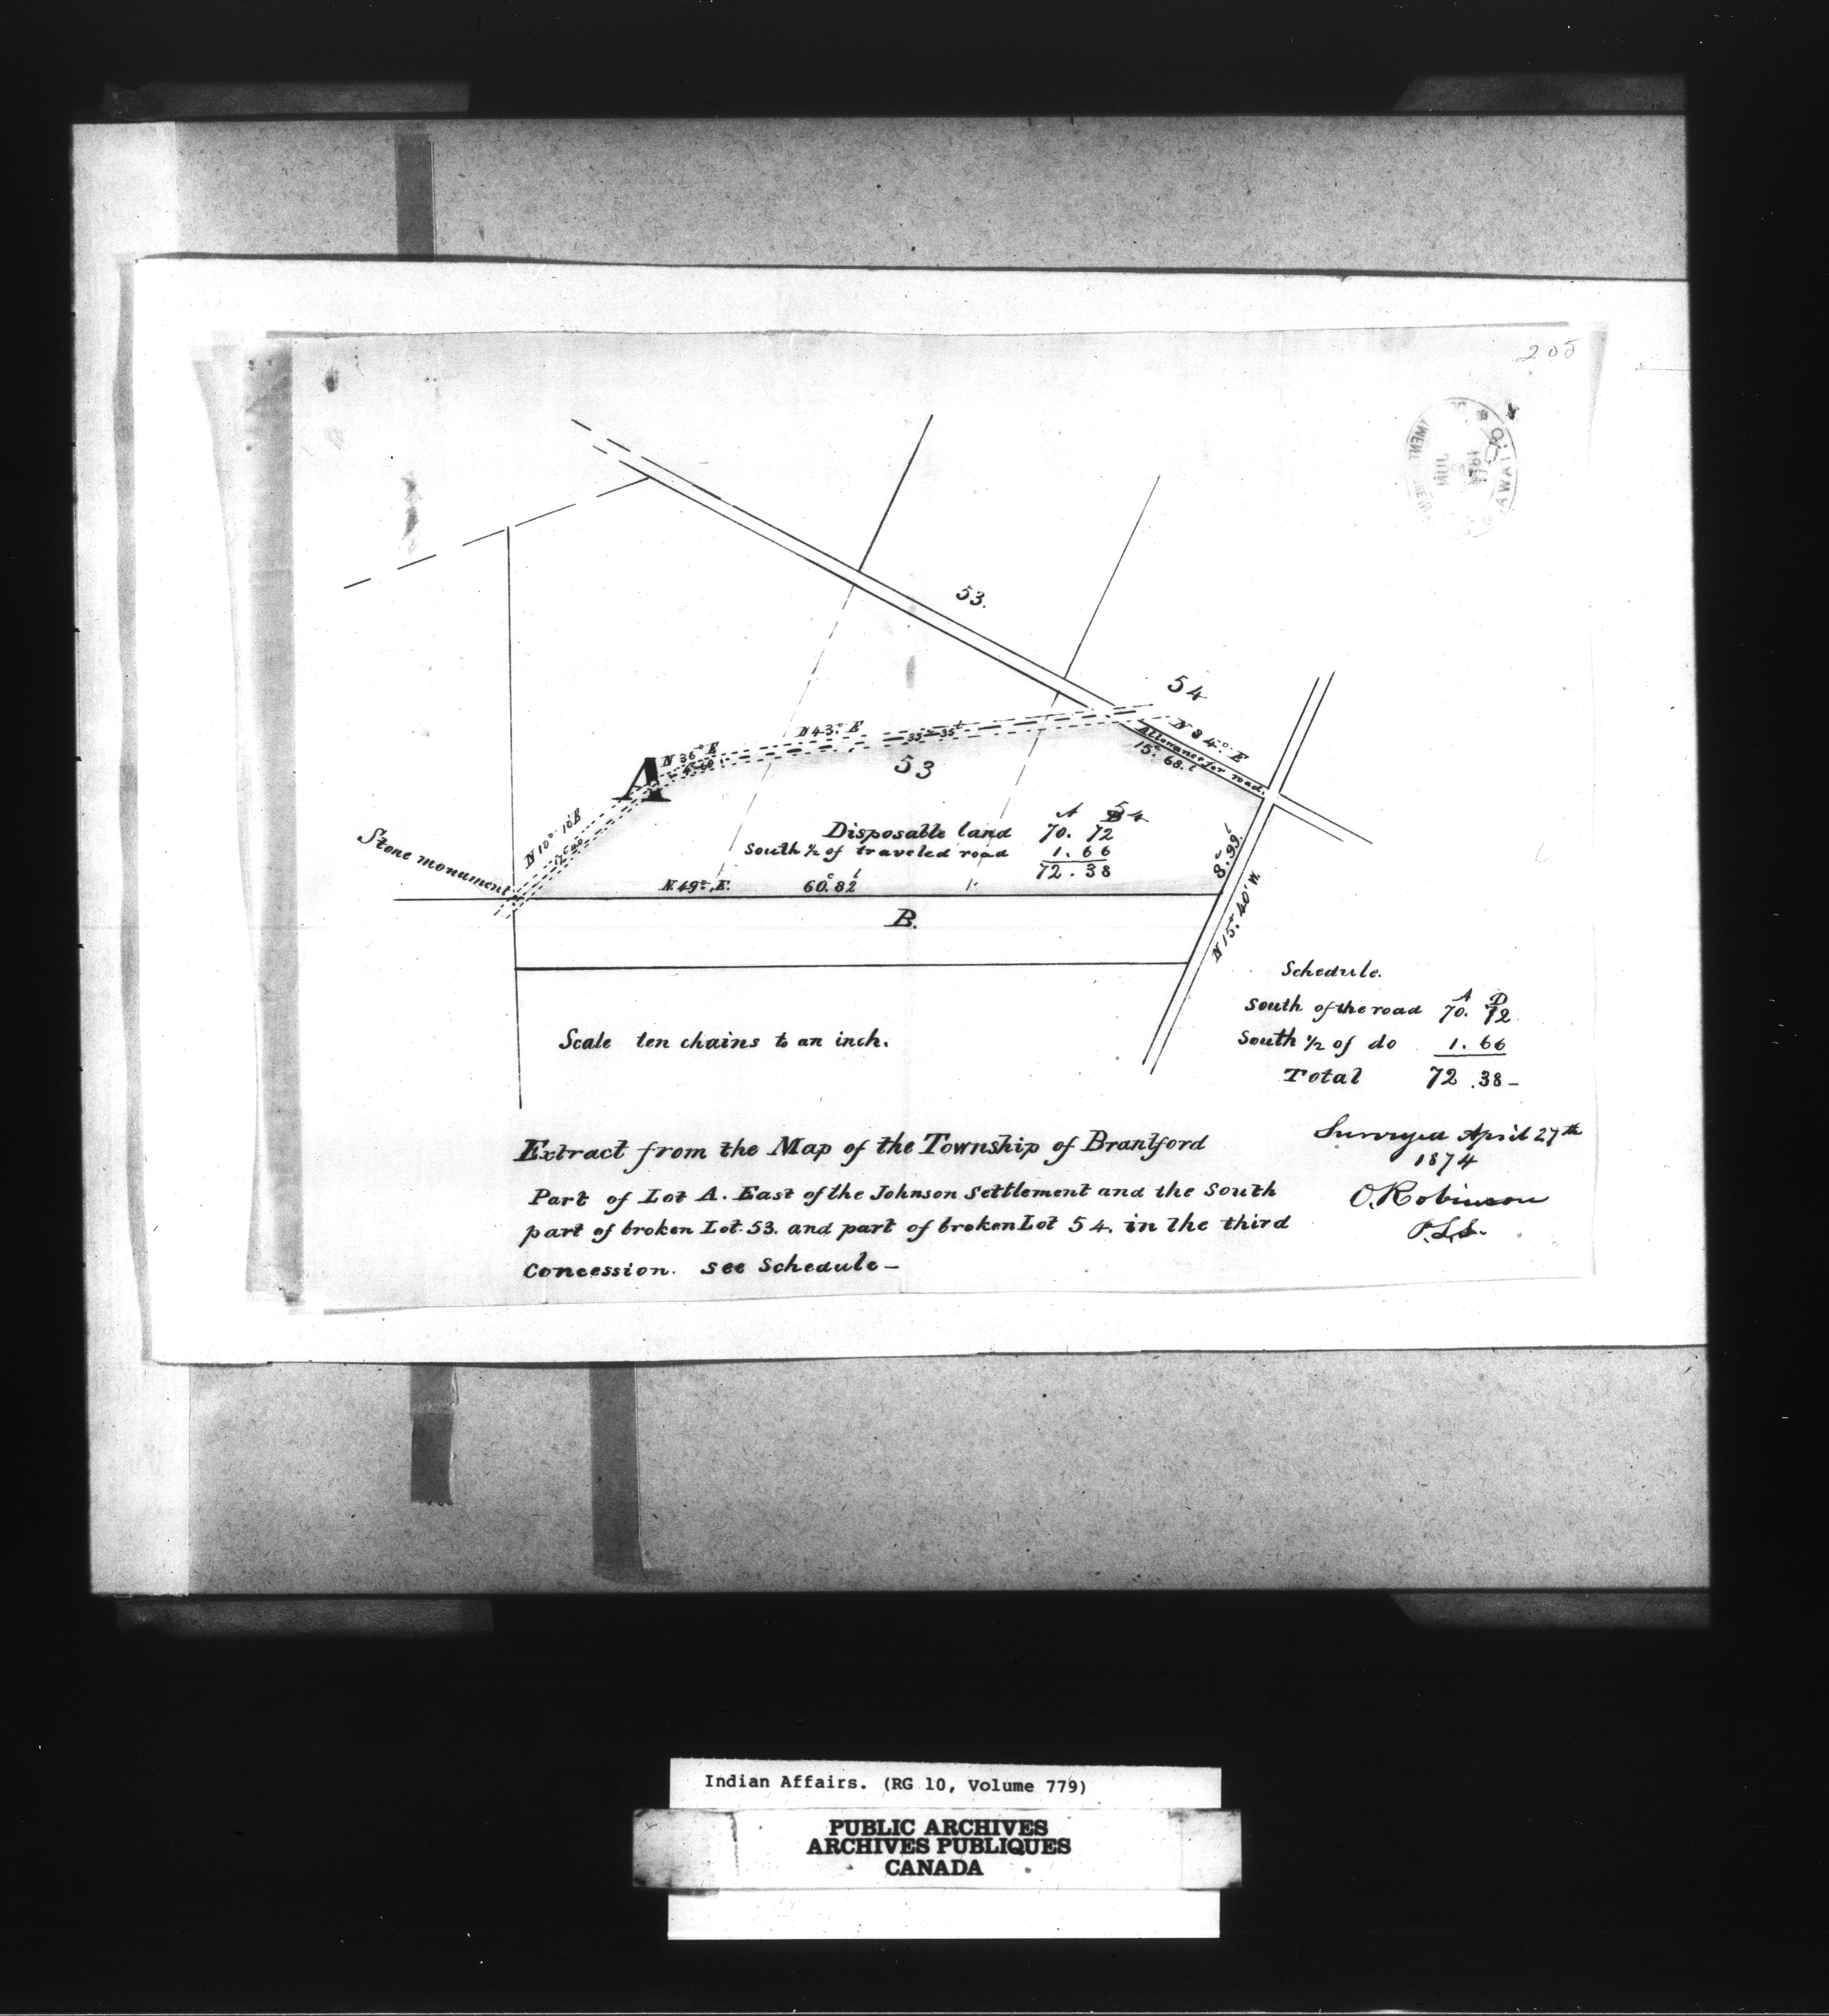 205
OTTAWA
JUN
1874
53.
54
N 84° E
Allowance for road.
15c 68.l
N 43° E
35c 35l
N 36° E
4c 60
A
53
N 10° 10' E
Stone monument
A 54
Disposable land 70. 72
South ½ of traveled road 1. 66
72. 38
8c 99l
N 49° E. 60c 82l
N 15° 40' W.
B.
Schedule.
A D
South of the road 70. 72
South ½ of do 1. 66
Total 72. 38—
Scale ten chains to an inch.
Extract from the Map of the Township of Brantford
Part of Lot A. East of the Johnson Settlement and the South
part of broken Lot 53. and part of broken Lot 54. in the third
Concession. see Schedule—
Surveyed April 27th
1874
O. Robinson
P.L.S.
Indian Affairs. (RG 10, Volume 779)
PUBLIC ARCHIVES
ARCHIVES PUBLIQUES
CANADA